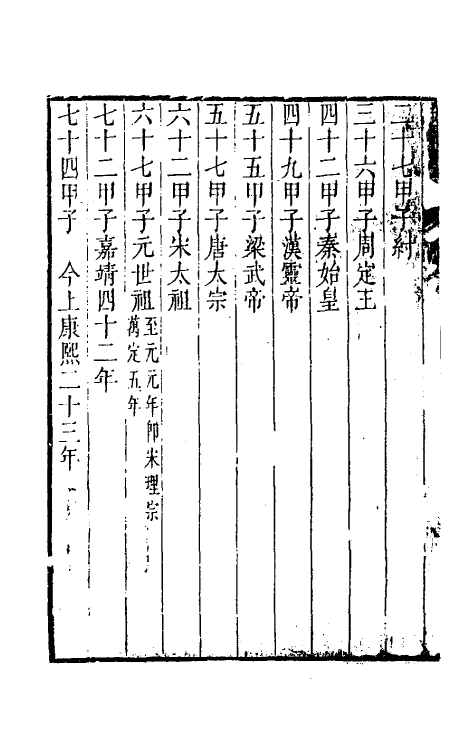 二十七甲子紂
三十六甲子周定王
四十二甲子秦始皇
四十九甲子漢靈帝
五十五甲子梁武帝
五十七甲子唐太宗
六十二甲子宋太祖
六十七甲子元世祖至元元年即宋理宗景定五年
七十二甲子嘉靖四十二年
七十四甲子 今上康熙二十三年